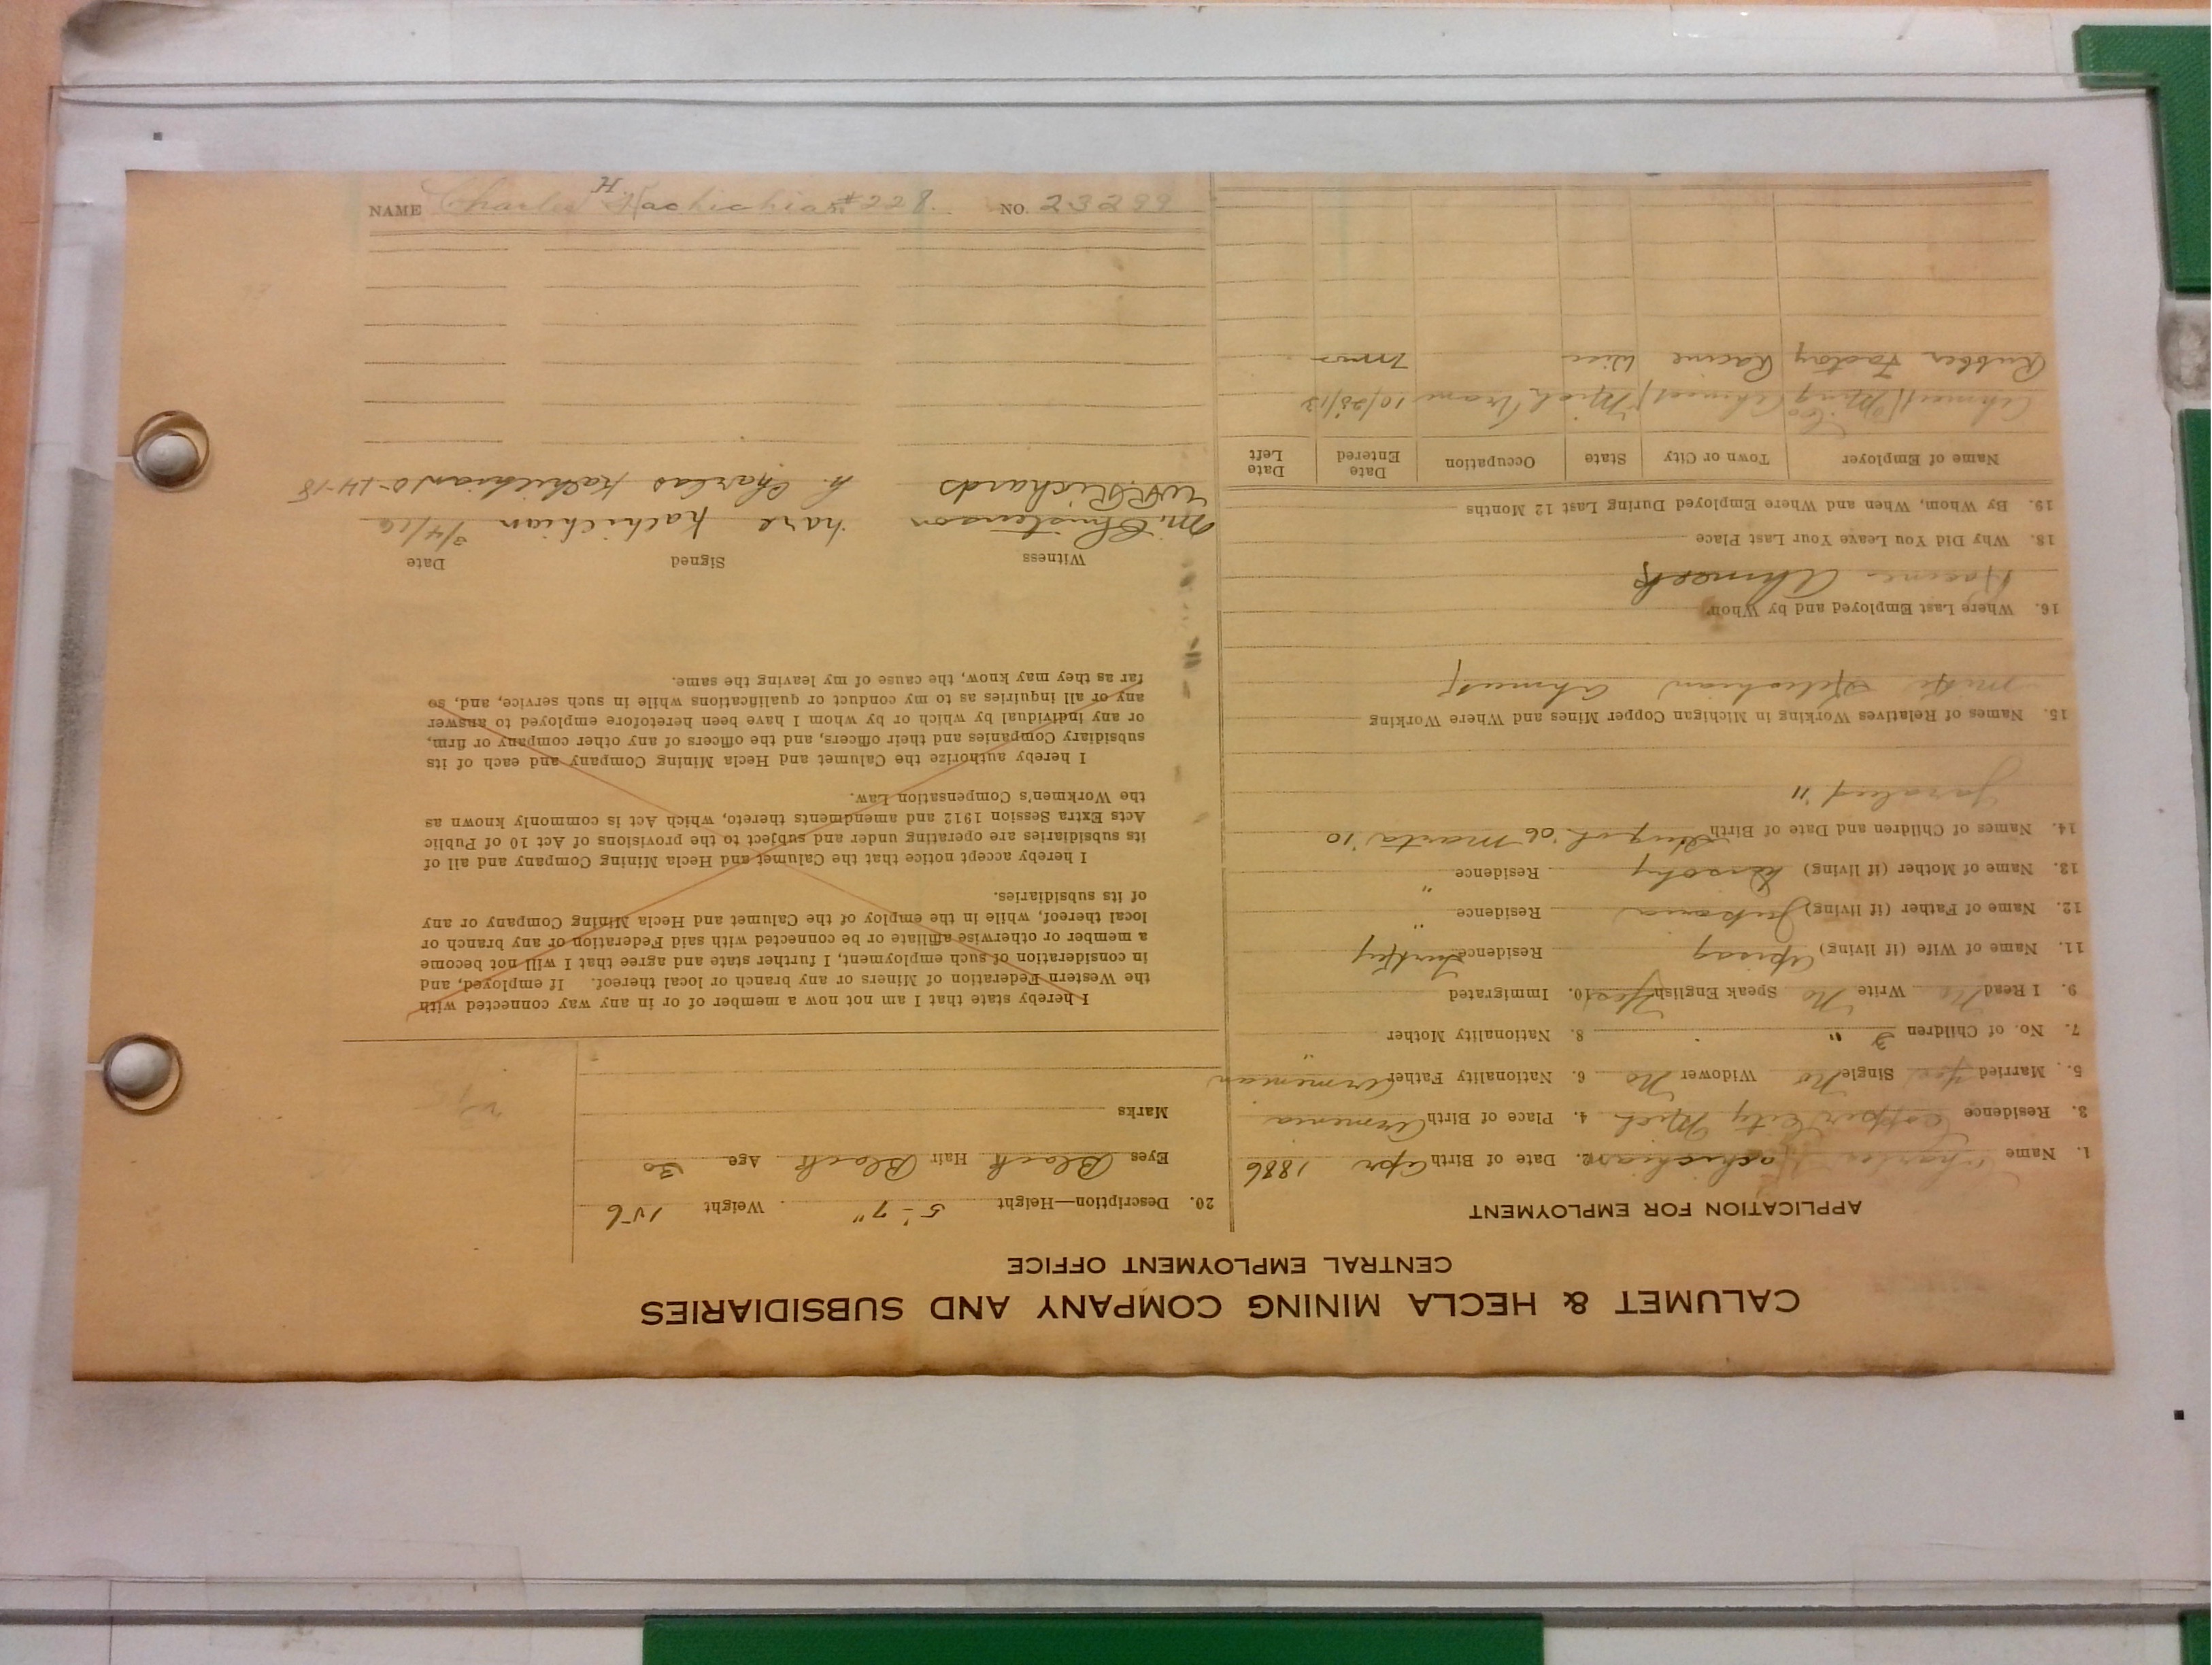 CALUMET & HECLA MINING COMPANY AND SUBSIDIARIES
CENTRAL EMPLOYMENT OFFICE
APPLICATION FOR EMPLOYMENT
1. Name Charles 2. Date of Birth Apr 1886
3. Residence Copper City Mich 4. Place of Birth Armenia
5. Married Yes Single No Widower No 6. Nationality Father Armenian
7. No. of Children 3 " 8. Nationality Mother "
9. I Read No Write No Speak English Yes 10. Immigrated
11. Name of Wife (if living) Residence Turkey
12. Name of Father (if living) Residence "
13. Name of Mother (if living) Residence "
14. Names of Children and Date of Birth '06 '10
'11
15. Names of Relatives Working in Michigan Copper Mines and Where Working
Mike Ahmeek
16. Where Last Employed and by Whom
Racine Ahmeek
18. Why Did You Leave Your Last Place
19. By Whom, When and Where Employed During Last 12 Months
Name of Employer Town or City State Occupation Date Entered Date Left
Ahmeek Mining Co Ahmeek Mich Tram 10/28/13
Rubber Factory Racine Wisc 7 mos
20. Description—Height 5'-7" Weight 156
Eyes Black Hair Black Age 30
Marks
I hereby state that I am not now a member of or in any way connected with
the Western Federation of Miners or any branch or local thereof. If employed, and
in consideration of such employment, I further state and agree that I will not become
a member or otherwise affiliate or be connected with said Federation or any branch or
local thereof, while in the employ of the Calumet and Hecla Mining Company or any
of its subsidiaries.
I hereby accept notice that the Calumet and Hecla Mining Company and all of
its subsidiaries are operating under and subject to the provisions of Act 10 of Public
Acts Extra Session 1912 and amendments thereto, which Act is commonly known as
the Workmen's Compensation Law.
I hereby authorize the Calumet and Hecla Mining Company and each of its
subsidiary Companies and their officers, and the officers of any other company or firm,
or any individual by which or by whom I have been heretofore employed to answer
any or all inquiries as to my conduct or qualifications while in such service, and, so
far as they may know, the cause of my leaving the same.
Witness Signed Date
M. Christenson hare kachichian 3/4/16
W.R. Richards h. Charlas kachichian 10-14-18
NAME Charles H Kachichian #228. NO. 23299